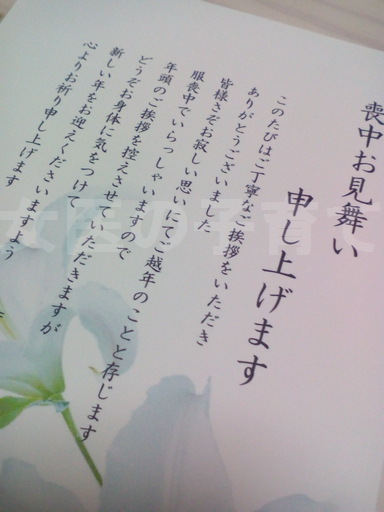 喪中お見舞い
申し上げます
このたびはご丁寧なご挨拶をいただき
ありがとうございました
皆様さぞお寂しい思いにてご越年のことと存じます
服喪中でいらっしゃいますので
年頭のご挨拶を控えさせていただきますが
どうぞお身体に気をつけて
新しい年をお迎えくださいますよう
心よりお祈り申し上げます
女医の子育て